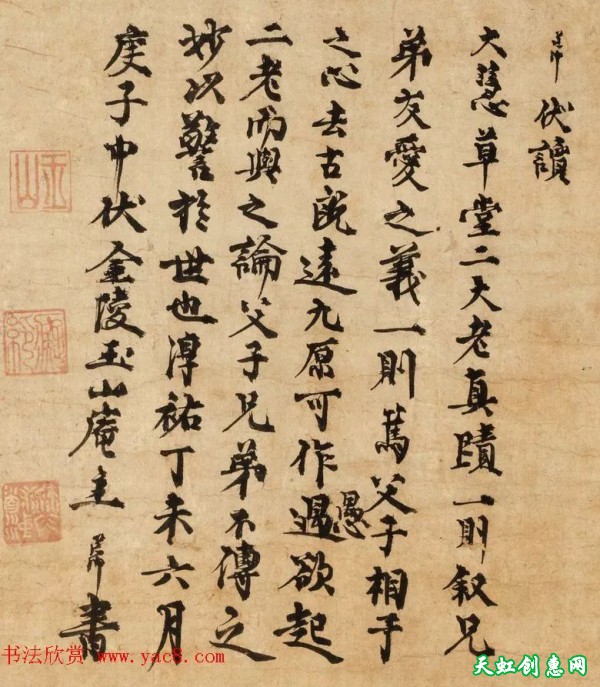 伏讀
大慧草堂二大老真蹟一則叙兄
弟友愛之義一則篤父子相于
之心去古既遠九原可作過愚欲起
二老而與之論父子兄弟不傳之
妙以警於世也淳祐丁未六月
庚子中伏金陵玉山庵主書
玉山
书法欣赏 www.yac8.com
天虹创惠网